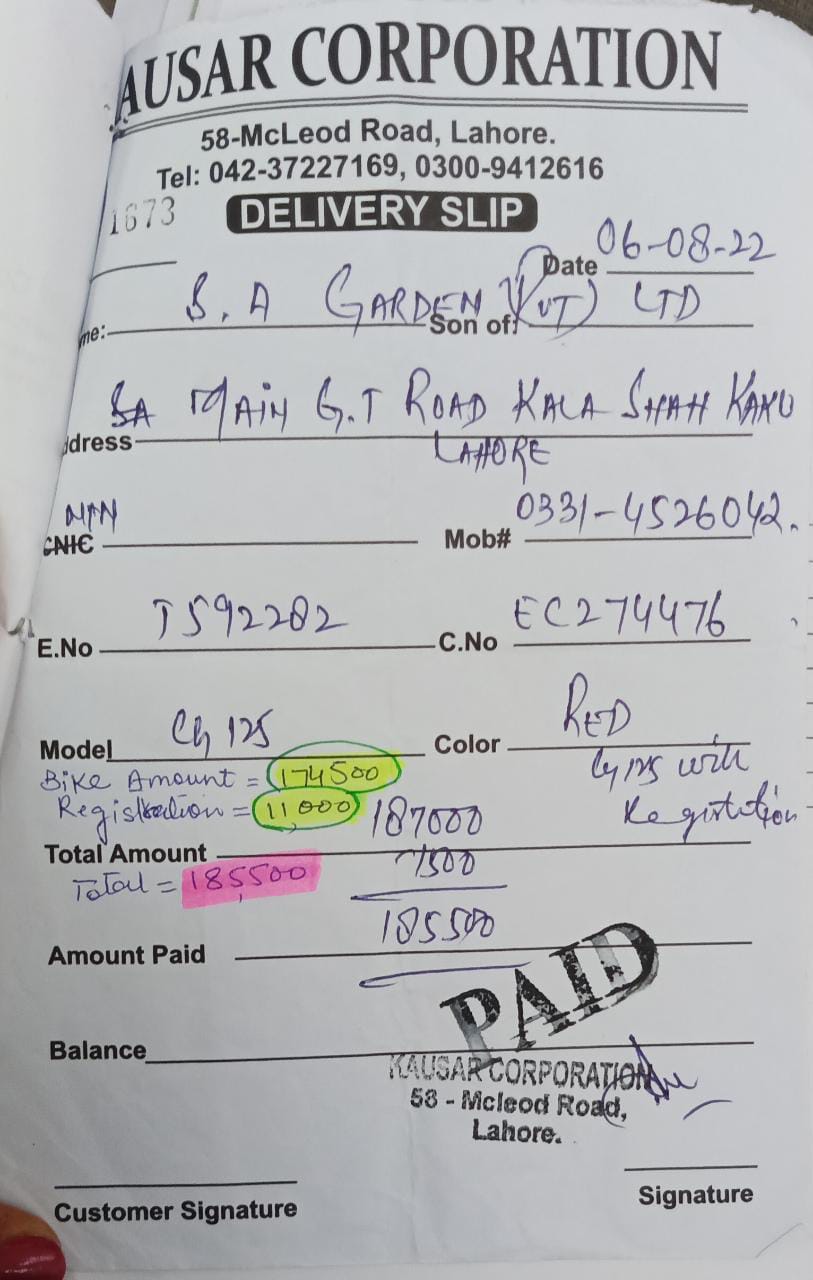 AUSAR CORPORATION
58-McLeod Road, Lahore.
Tel: 042-37227169, 0300-9412616
1673 DELIVERY SLIP
Date 06-08-22
me: S.A GARDEN (PVT) LTD
Son of:
ddress SA MAIN G.T ROAD KALA SHAH KAKU
LAHORE
NTN
CNIC Mob# 0331-4526042.
E.No T592282 C.No EC274476
Model CG 125 Color RED
Bike Amount = 174500 CG 125 with
Registration = 11,000 187000 Registration
Total Amount
Total = 185,500 1500
Amount Paid 185500
PAID
Balance
KAUSAR CORPORATION
58 - Mcleod Road,
Lahore.
Customer Signature Signature